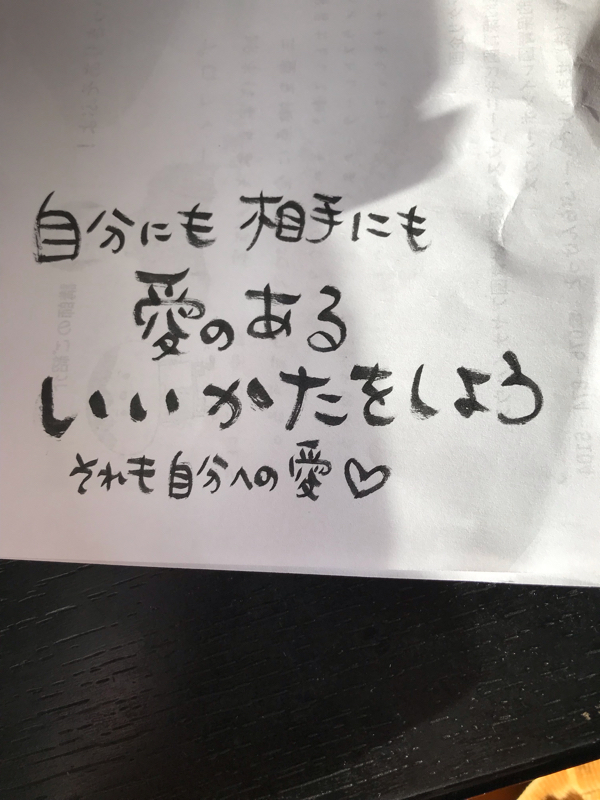 自分にも 相手にも
愛のある
いいかたをしよう
それも自分への愛♡